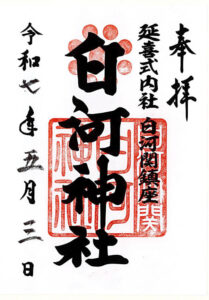 奉拝
延喜式内社
白河関鎮座
白河神社
令和七年五月三日